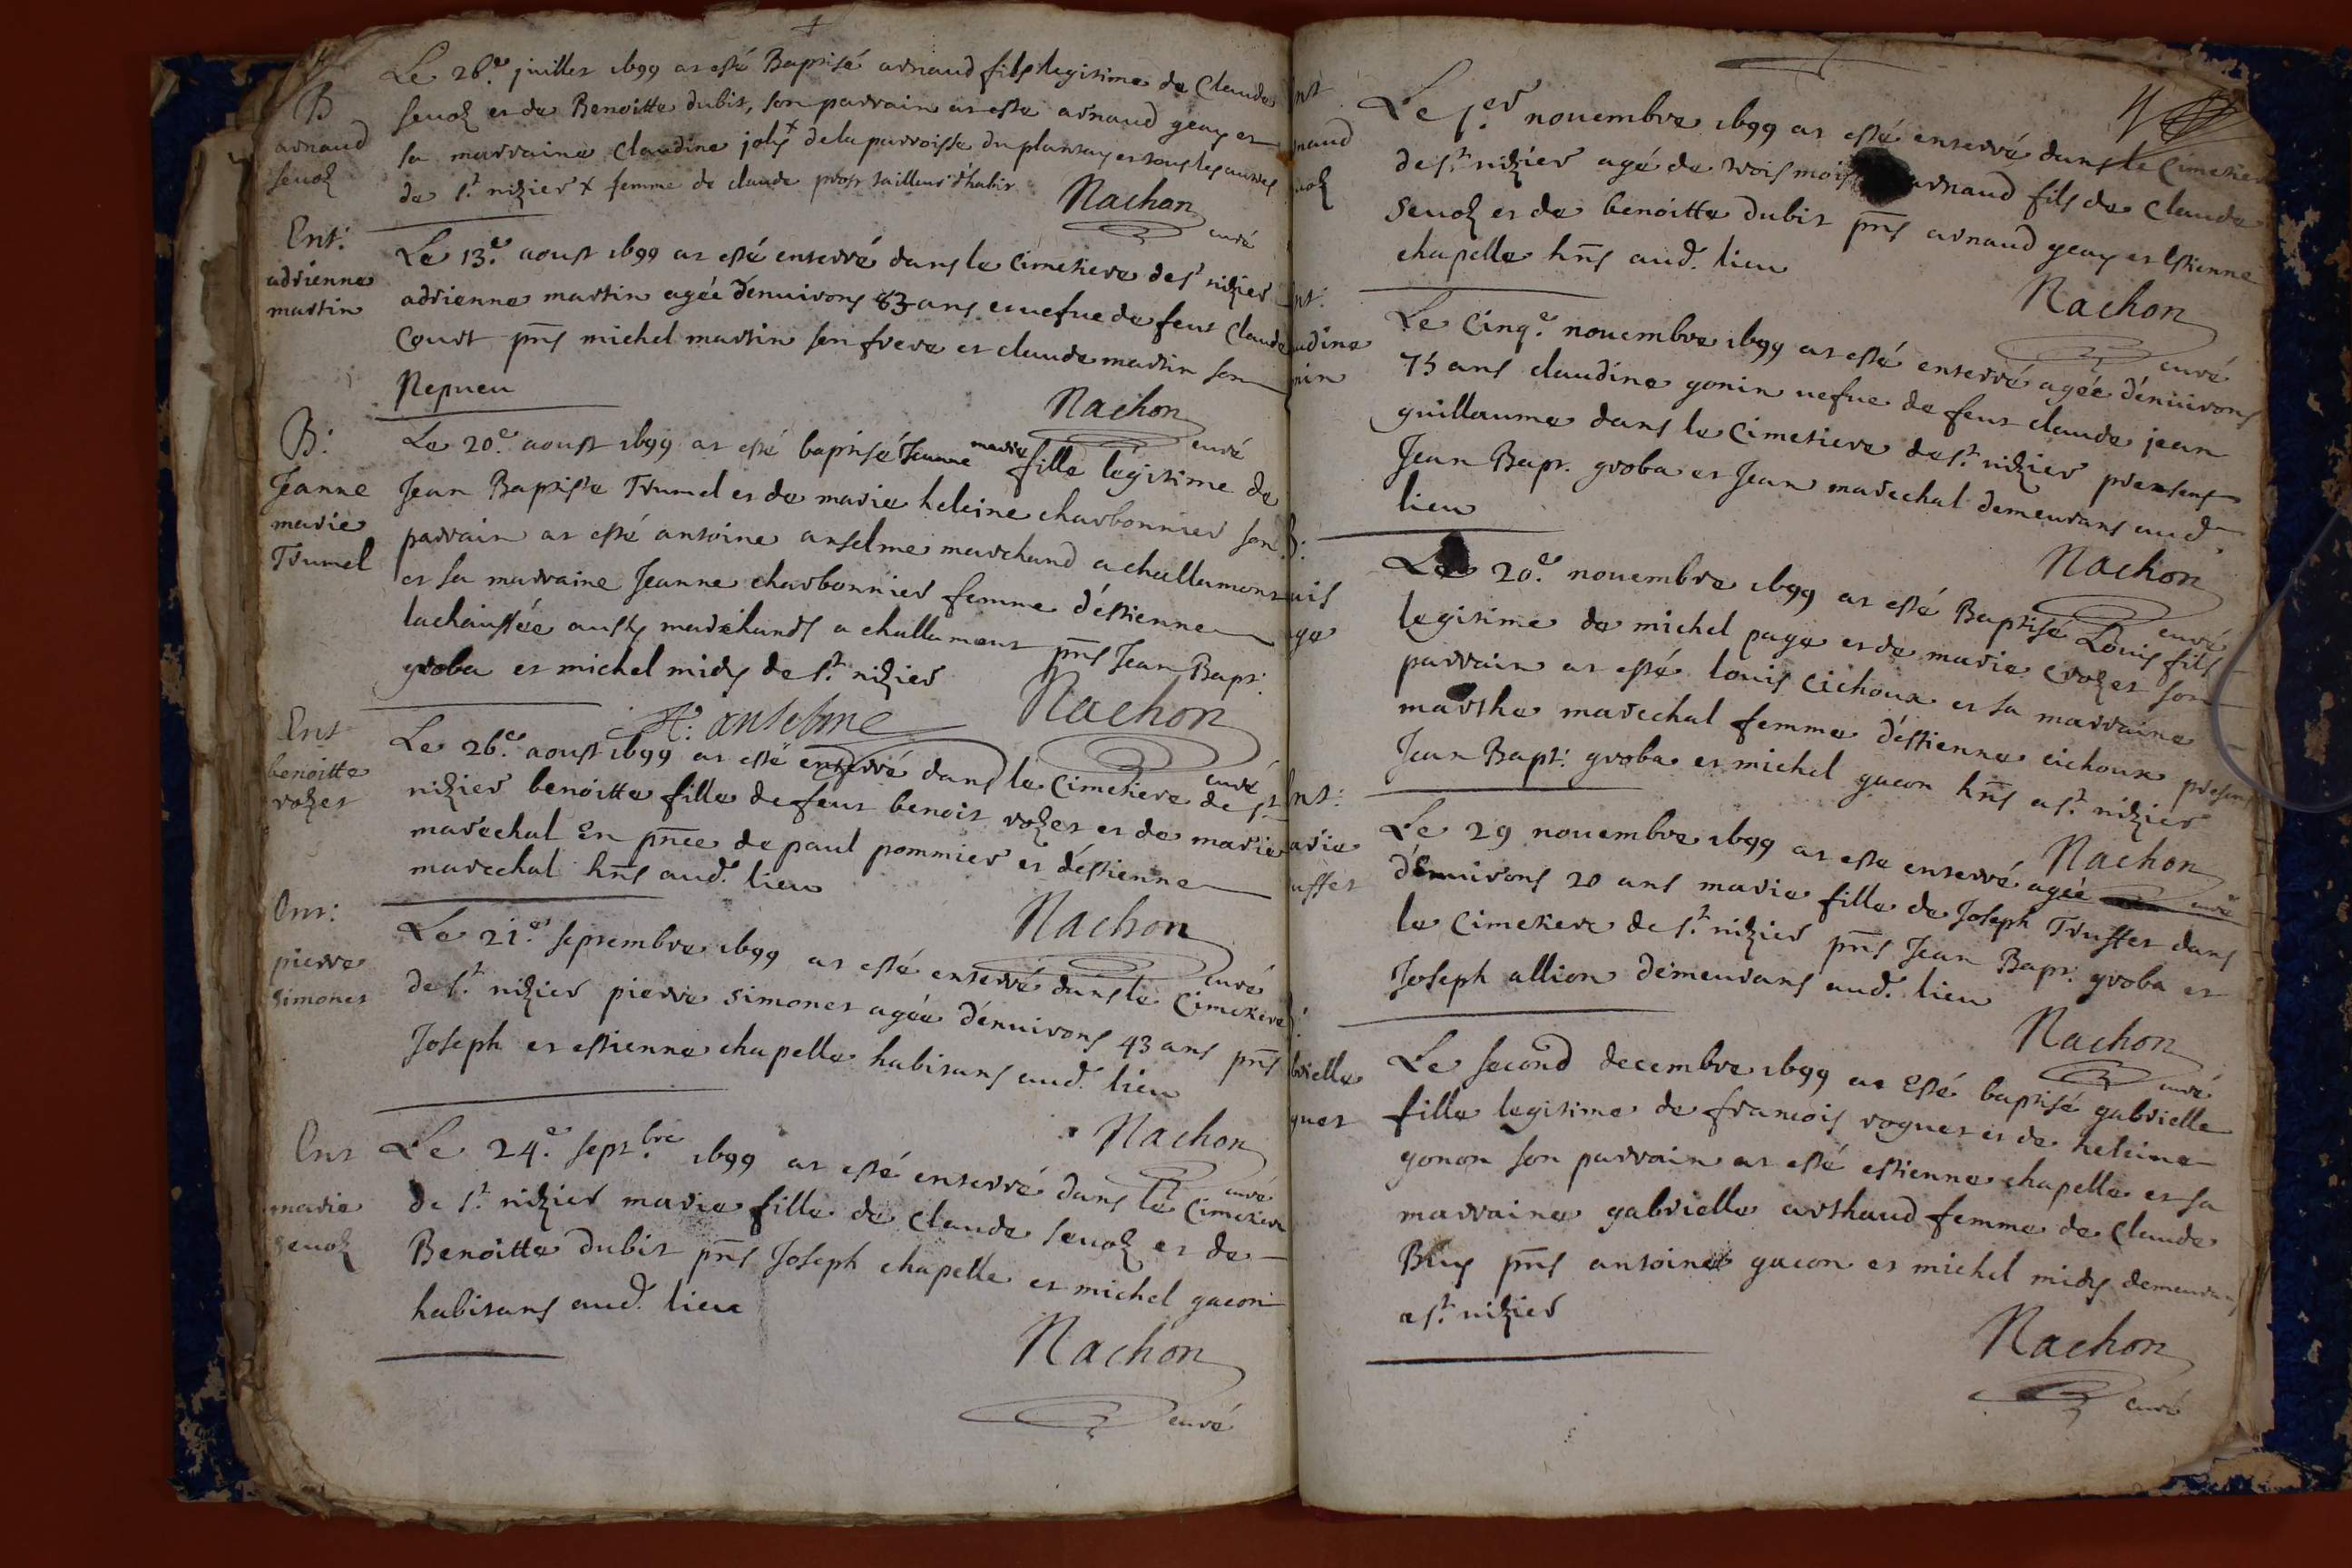 B
arnaud
seuoz
Le 26.e juillet 1699 at esté Baptisé arnaud fils legitime de Claude
seuoz et de Benoitte dubit, son parrain at esté arnaud geay et
sa marraine Claudine joly x de la parroisse du plantay et tous les autres
de st nizier x femme de claude prost tailleur d'habit
Nachon
curé
Ent:
adrienne
martin
Le 13.e aoust 1699 at esté enterré dans le Cimetiere de st nizier
adrienne martin agée d'enuirons 63 ans et uefue de feut Claude
Court pnts michel martin son frere et claude martin son
Nepueu
Nachon
curé
B:
Jeanne
marie
Trumel
Le 20.e aoust 1699 at esté baptisé Jeanne marie fille légitime de
Jean Baptiste Trumel et de marie heleine charbonnier son
parrain at esté antoine anselme marchand a challamont
et sa marraine Jeanne charbonnier femme d'éstienne
lachaussée aussy marchands a challamont pnts Jean Bapt:
groba et michel midy de st. nizier
A: anselme
Nachon
curé
Ent
benoitte
rozet
Le 26.e aoust 1699 at esté enterré dans le Cimetiere de st
nizier benoitte fille de feut benoit rozet et de marie
marechal En pnce de paul pommier et d'éstienne
marechal hnts aud. lieu
Nachon
curé
Ent:
pierre
simonet
Le 21.e septembre 1699 at esté enterré dans le Cimetiere
de st. nizier pierre simonet agée d'enuirons 43 ans pnts
Joseph et estienne chapelle habitans aud. lieu
Nachon
curé
Ent
marie
seuoz
Le 24.e sept.bre 1699 at esté enterré dans le Cimetiere
de st. nizier marie fille de Claude seuoz et de
Benoitte dubit pnts Joseph chapelle et michel gacon
habitans aud. lieu
Nachon
curé
nt
naud
uoz
Le 1.er nouembre 1699 at esté enterré dans le Cimetiere
de st. nizier agé de trois mois arnaud fils de Claude
seuoz et de benoitte dubit pnts arnaud geay et Estienne
chapelle hnts aud. lieu
Nachon
curé
nt:
udine
nin
Le Cinq.e nouembre 1699 at esté enterré agée d'enuirons
75 ans claudine gonin uefue de feut claude jean
guillaume dans le Cimetiere de st. nizier presens
Jean Bapt. groba et Jean marechal demeurans aud.
lieu
Nachon
curé
B:
uis
ge
Le 20.e nouembre 1699 at esté Baptisé Louis fils
legitime de michel page et de marie Crozet son
parrain at esté louis Cichoux et sa marraine
marthe marechal femme d'éstienne cichoux presens
Jean Bapt: groba et michel gacon hnts a st. nizier
Nachon
curé
nt:
arie
uffet
Le 29 nouembre 1699 at esté enterré agée
d'enuirons 20 ans marie fille de Joseph Truffet dans
le Cimetiere de st. nizier pnts Jean Bapt. groba et
Joseph allion demeurans aud. lieu
Nachon
curé
:
brielle
guet
Le second decembre 1699 at Esté baptisé gabrielle
fille legitime de francois roguet et de heleine
gonon son parrain at esté estienne chapelle et sa
marraine gabrielle arthaud femme de Claude
Bruy pnts antoine gacon et michel midy demeurans
a st. nizier
Nachon
curé